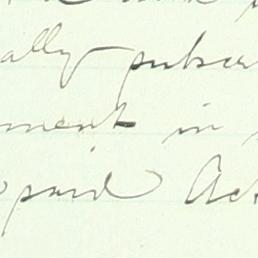 ally subscr
ment in
paid Act